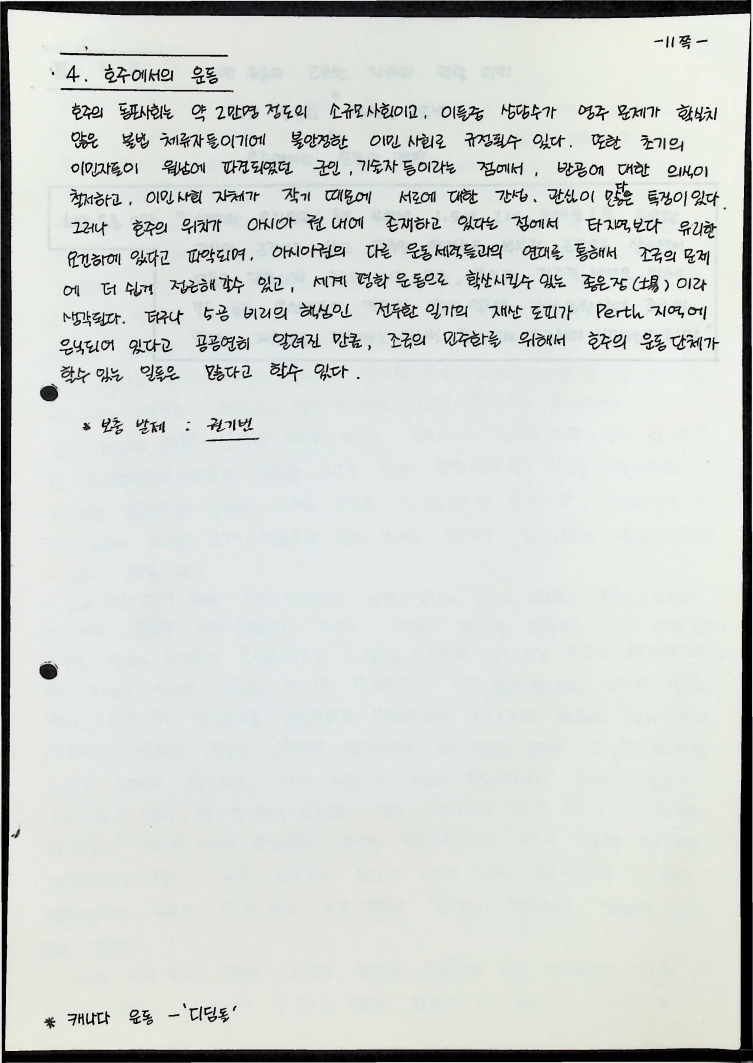 -11쪽-
4. 호주에서의 운동
호주의 동포사회는 약 2만명 정도의 소규모사회이고, 이들중 상당수가 영주 문제가 확실치
않은 불법 체류자들이기에 불안정한 이민 사회로 규정될수 있다. 또한 초기의
이민자들이 월남에 파견되었던 군인, 기술자 등이라는 점에서, 반공에 대한 의식이
철저하고, 이민사회 자체가 작기 때문에 서로에 대한 간섭, 관심이 많다는 특징이 있다.
그러나 호주의 위치가 아시아 권 내에 존재하고 있다는 점에서 타지역보다 유리한
요건하에 있다고 파악되며, 아시아권의 다른 운동세력들과의 연대를 통해서 조국의 문제
에 더 쉽게 접근해 갈수 있고, 세계 평화 운동으로 확산시킬수 있는 좋은장(場)이라
생각된다. 더구나 5공 비리의 핵심인 전두환 일가의 재산 도피가 Perth 지역에
은닉되어 있다고 공공연히 알려진 만큼, 조국의 민주화를 위해서 호주의 운동단체가
할수 있는 일들은 많다고 할수 있다.
* 보충 발제 : 권기범
* 캐나다 운동 -'디딤돌'